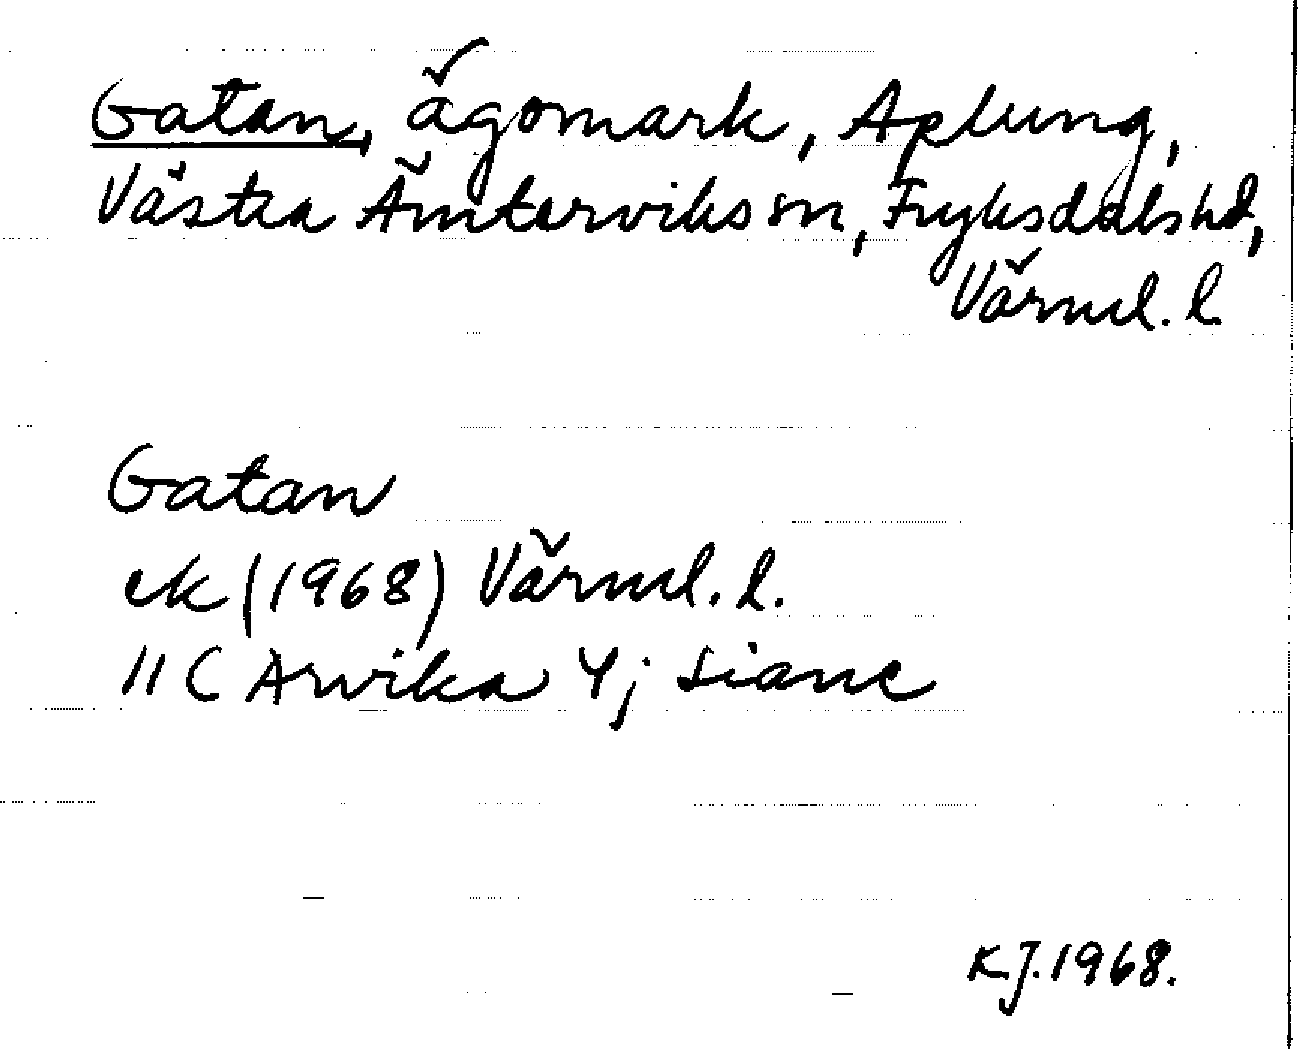 Gatan, ägomark, Aplung,
Västra Ämterviks sn, Fryksdals hd,
Värml. l.
Gatan
ek (1968) Värml. l.
11 C Arvika 4j
K.J. 1968.